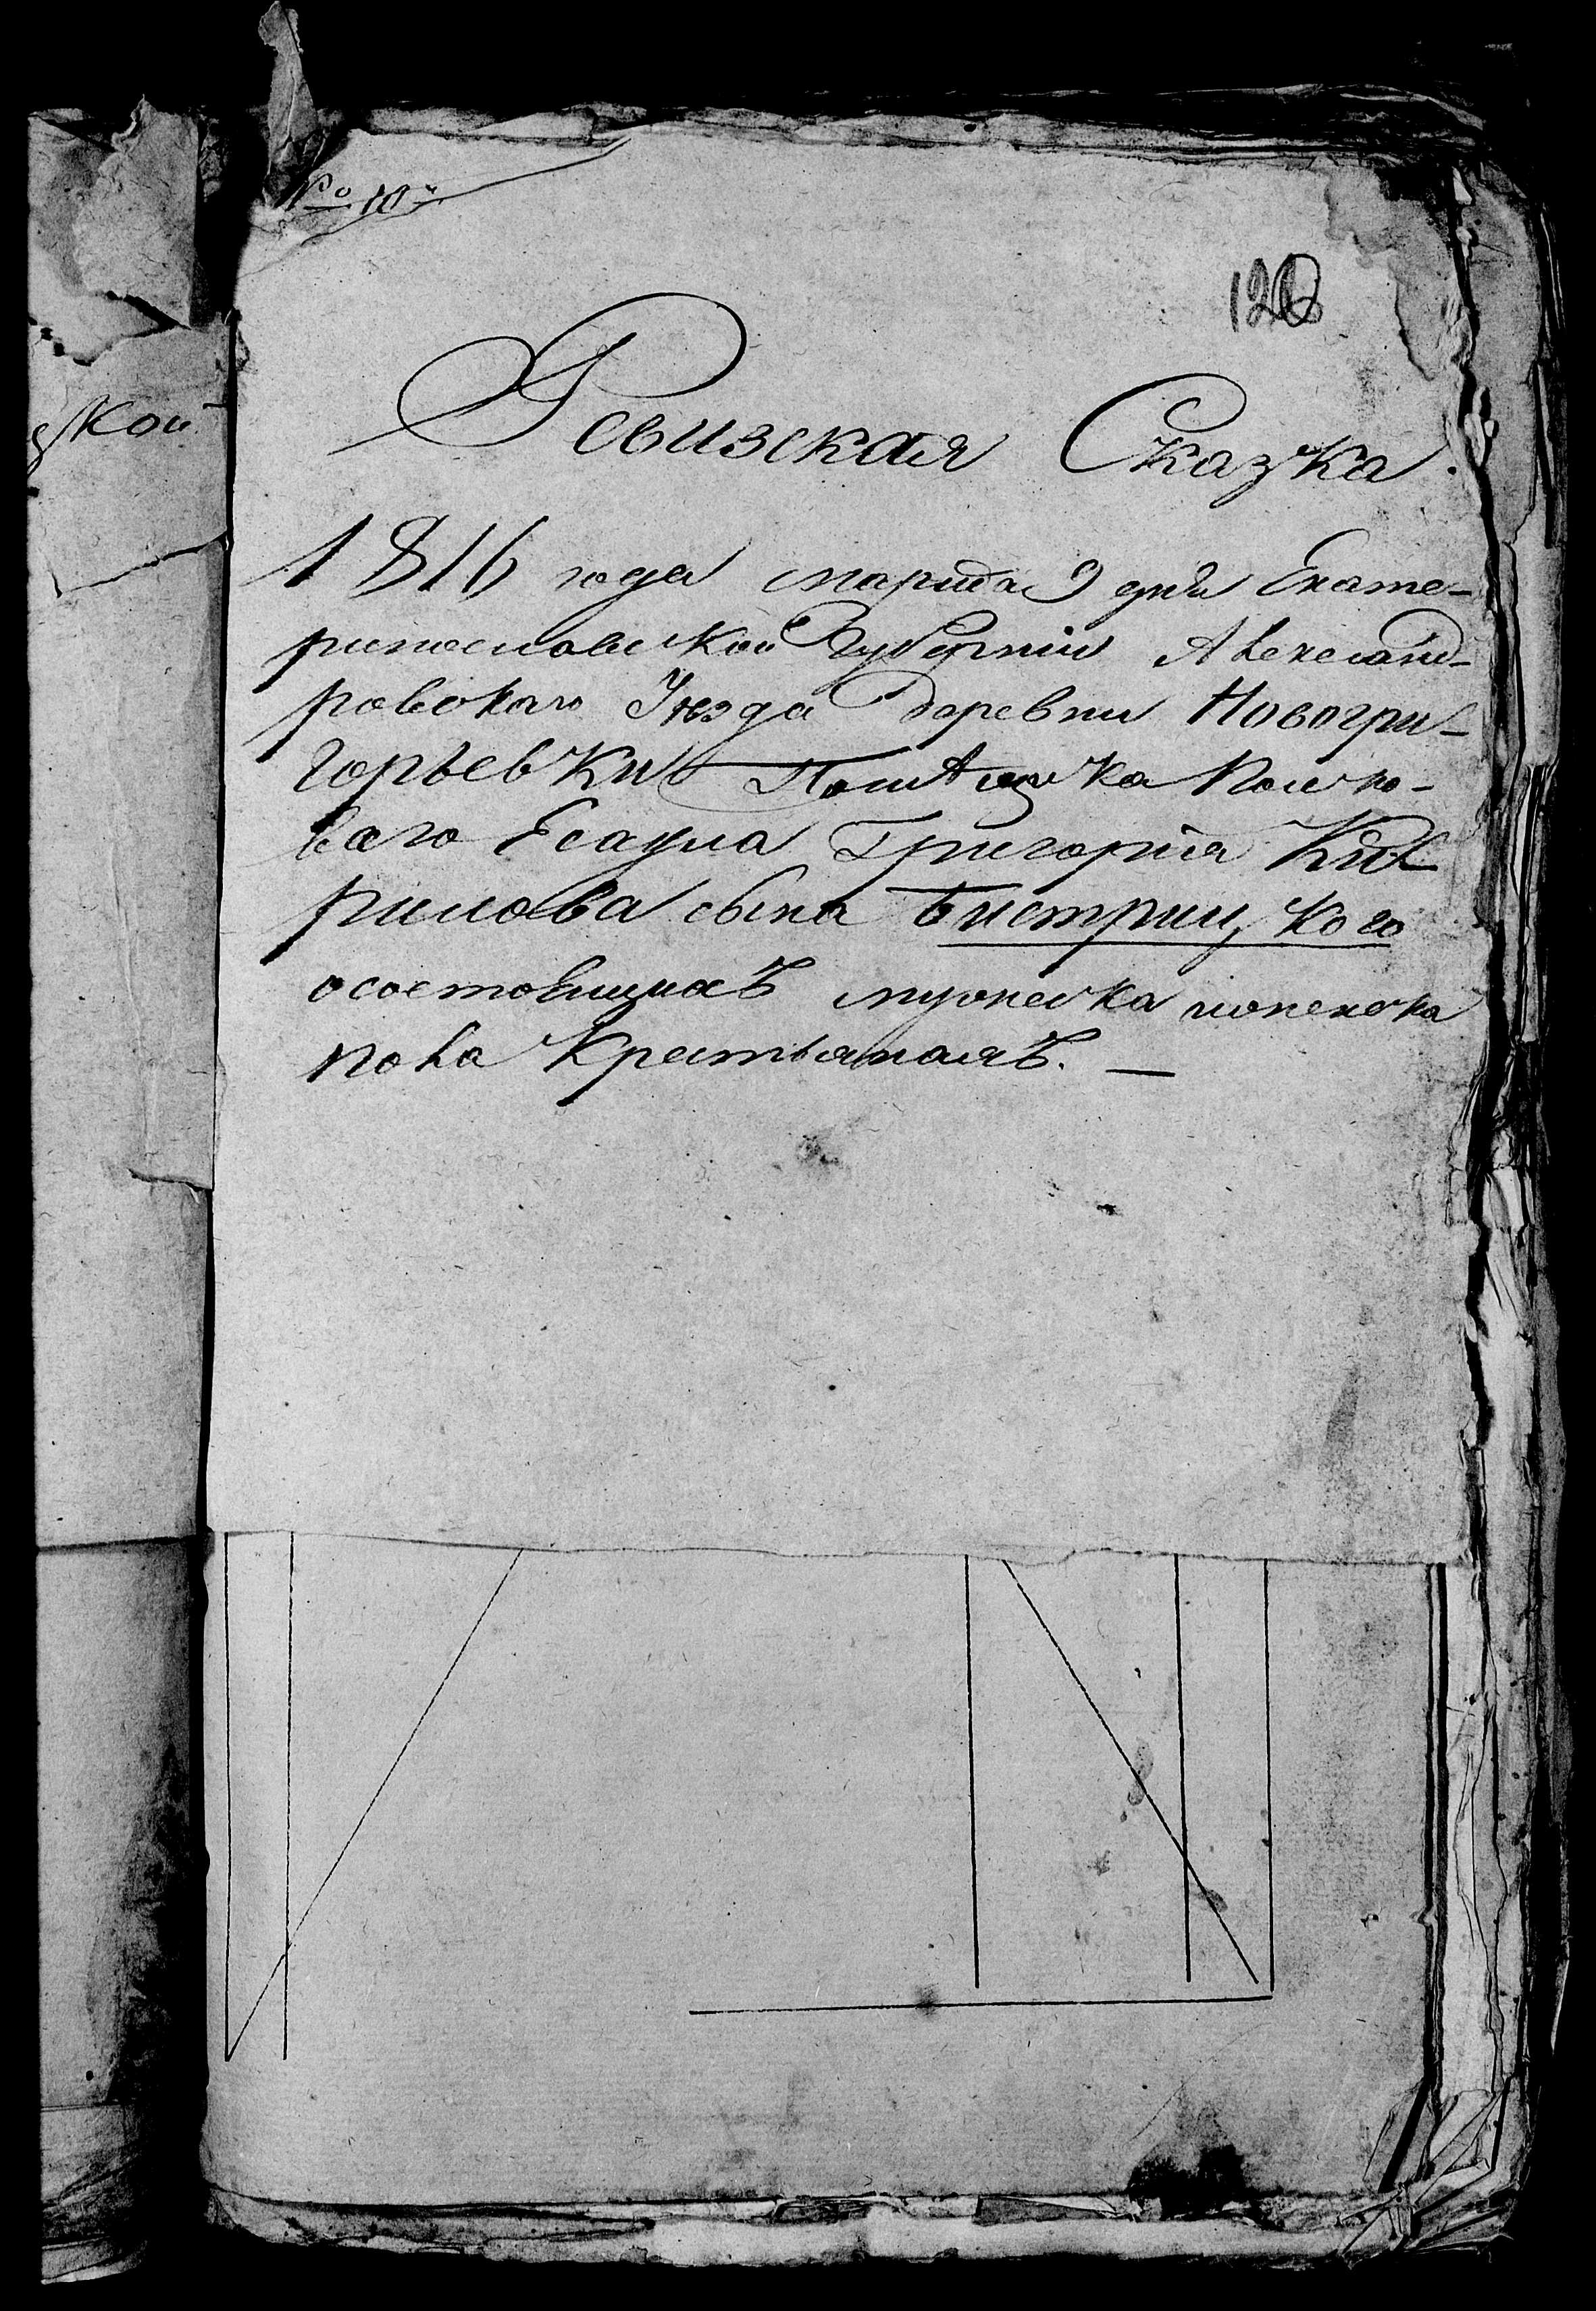 No 10й
128
ской
Ревизская Сказка.
1816 года марта 9 дня Екате-
ринославской Губерніи Александ-
ровскаго Уезда деревни Новогри-
горьевки Помѣщика Полко-
ваго Есаула Григорія Ки-
рилова сына Бистрицкого
осостоящихъ мужеска иоженска
пола крестьянахъ. —